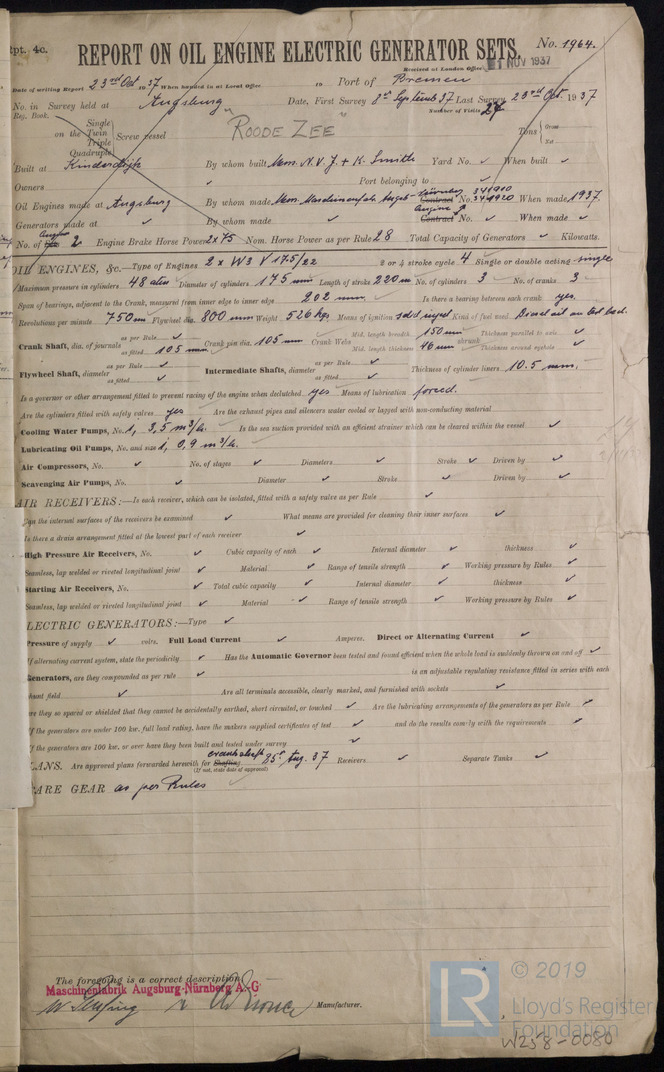 Rpt. 4c.
REPORT ON OIL ENGINE ELECTRIC GENERATOR SETS. No. 1964.
Received at London Office NOV 1937
Date of writing Report 23rd Oct 1937 When handed in at Local Office 19 Port of Bremen
No. in Survey held at Augsburg Date, First Survey 8th Septemb. 37 Last Survey 23rd Oct. 1937
Reg. Book. Number of Visits
on the Single Twin Triple Quadruple Screw vessel "ROODE ZEE" Tons Gross Net
Built at Kinderdijk By whom built Mess. N.V. J. & K. Smith Yard No. ✓ When built ✓
Owners ✓ Port belonging to ✓
Oil Engines made at Augsburg By whom made Mess. Maschinenfabr. Augsb.-Nürnberg Engine Contract No. 341910 341920 When made 1937
Generators made at ✓ By whom made ✓ Contract No. ✓ When made ✓
No. of Sets 2 Engine Brake Horse Power 2x75 Nom. Horse Power as per Rule 28 Total Capacity of Generators ✓ Kilowatts.
OIL ENGINES, &c.—Type of Engines 2 x W3 V 17.5/22 2 or 4 stroke cycle 4 Single or double acting single
Maximum pressure in cylinders 48 atm Diameter of cylinders 175 mm Length of stroke 220 m No. of cylinders 3 No. of cranks 3
Span of bearings, adjacent to the Crank, measured from inner edge to inner edge 202 mm. Is there a bearing between each crank yes
Revolutions per minute 750 Flywheel dia. 800 mm Weight 526 kgs. Means of ignition Kind of fuel used Diesel oil
Crank Shaft, dia. of journals as per Rule ✓ as fitted 105 mm Crank pin dia. 105 mm Crank Webs Mid. length breadth 150 mm Mid. length thickness 46 mm shrunk Thickness parallel to axis ✓ Thickness around eyehole ✓
Flywheel Shaft, diameter as per Rule ✓ as fitted ✓ Intermediate Shafts, diameter as per Rule ✓ as fitted ✓ Thickness of cylinder liners 10.5 mm.
Is a governor or other arrangement fitted to prevent racing of the engine when declutched yes Means of lubrication forced.
Are the cylinders fitted with safety valves yes Are the exhaust pipes and silencers water cooled or lagged with non-conducting material
Cooling Water Pumps, No. 1, 3,5 m³/h. Is the sea suction provided with an efficient strainer which can be cleared within the vessel ✓
Lubricating Oil Pumps, No. and size 1, 0,9 m³/h.
Air Compressors, No. ✓ No. of stages ✓ Diameters ✓ Stroke ✓ Driven by ✓
Scavenging Air Pumps, No. ✓ Diameter ✓ Stroke ✓ Driven by ✓
AIR RECEIVERS:—Is each receiver, which can be isolated, fitted with a safety valve as per Rule ✓
Can the internal surfaces of the receivers be examined ✓ What means are provided for cleaning their inner surfaces ✓
Is there a drain arrangement fitted at the lowest part of each receiver ✓
High Pressure Air Receivers, No. ✓ Cubic capacity of each ✓ Internal diameter ✓ thickness ✓
Seamless, lap welded or riveted longitudinal joint ✓ Material ✓ Range of tensile strength ✓ Working pressure by Rules ✓
Starting Air Receivers, No. ✓ Total cubic capacity ✓ Internal diameter ✓ thickness ✓
Seamless, lap welded or riveted longitudinal joint ✓ Material ✓ Range of tensile strength ✓ Working pressure by Rules ✓
ELECTRIC GENERATORS:—Type ✓
Pressure of supply ✓ volts. Full Load Current ✓ Amperes. Direct or Alternating Current ✓
If alternating current system, state the periodicity ✓ Has the Automatic Governor been tested and found efficient when the whole load is suddenly thrown on and off ✓
Generators, are they compounded as per rule ✓ is an adjustable regulating resistance fitted in series with each
shunt field ✓ Are all terminals accessible, clearly marked, and furnished with sockets ✓
Are they so spaced or shielded that they cannot be accidentally earthed, short circuited, or touched ✓ Are the lubricating arrangements of the generators as per Rule ✓
If the generators are under 100 kw. full load rating, have the makers supplied certificates of test ✓ and do the results comply with the requirements ✓
If the generators are 100 kw. or over have they been built and tested under survey ✓
PLANS. Are approved plans forwarded herewith for Shafting crankshaft 25th Aug. 37 Receivers ✓ Separate Tanks ✓
(If not, state date of approval)
SPARE GEAR as per Rules
The foregoing is a correct description
Maschinenfabrik Augsburg-Nürnberg A.-G
Manufacturer.
LR © 2019
Lloyd's Register
Foundation
W258-0080